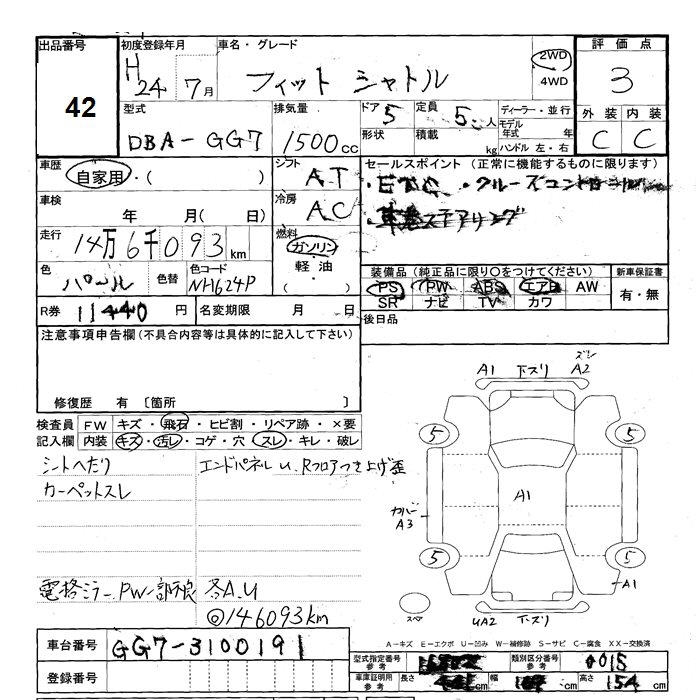 出品番号
42
初度登録年月
H24 7月
車名・グレード
フィット シャトル
2WD
4WD
評価点
3
外装 内装
C C
型式
DBA-GG7
排気量
1500cc
ドア 5
形状
定員 5人
積載 kg
ディーラー・並行
モデル年式 年
ハンドル 左・右
車歴
自家用・( )
シフト
AT
セールスポイント (正常に機能するものに限ります)
・ETC ・クルーズコントロール
・革巻ステアリング
車検
年 月( 日)
冷房
AC
走行
14万6千093km
燃料
ガソリン
軽油・
( )
色
パール
色替
色コード
NH624P
装備品 (純正品に限り○をつけてください)
PS PW ABS エアB AW
SR ナビ TV カワ
新車保証書
有・無
R券 11440円
名変期限 月 日
後日品
注意事項申告欄(不具合内容等は具体的に記入して下さい)
修復歴 有 〔箇所 〕
検査員記入欄
FW キズ・飛石・ヒビ割・リペア跡・×要
内装 キズ・汚レ・コゲ・穴・スレ・キレ・破レ
シートへたり
カーペットスレ
エンドパネルU、Rフロアつき上げ歪
電格ミラー、PW一部不良
各A.U
◎146093km
A1 下スリ A2
5 5
A1
カバー A3
5 5
A1
スペア
UA2 下スリ
A-キズ E-エクボ U-凹み W-補修跡 S-サビ C-腐食 XX-交換済
車台番号 GG7-3100191
登録番号
型式指定番号 参考
類別区分番号 参考 0015
車庫証明用 参考 長さ cm 幅 cm 高さ 154cm